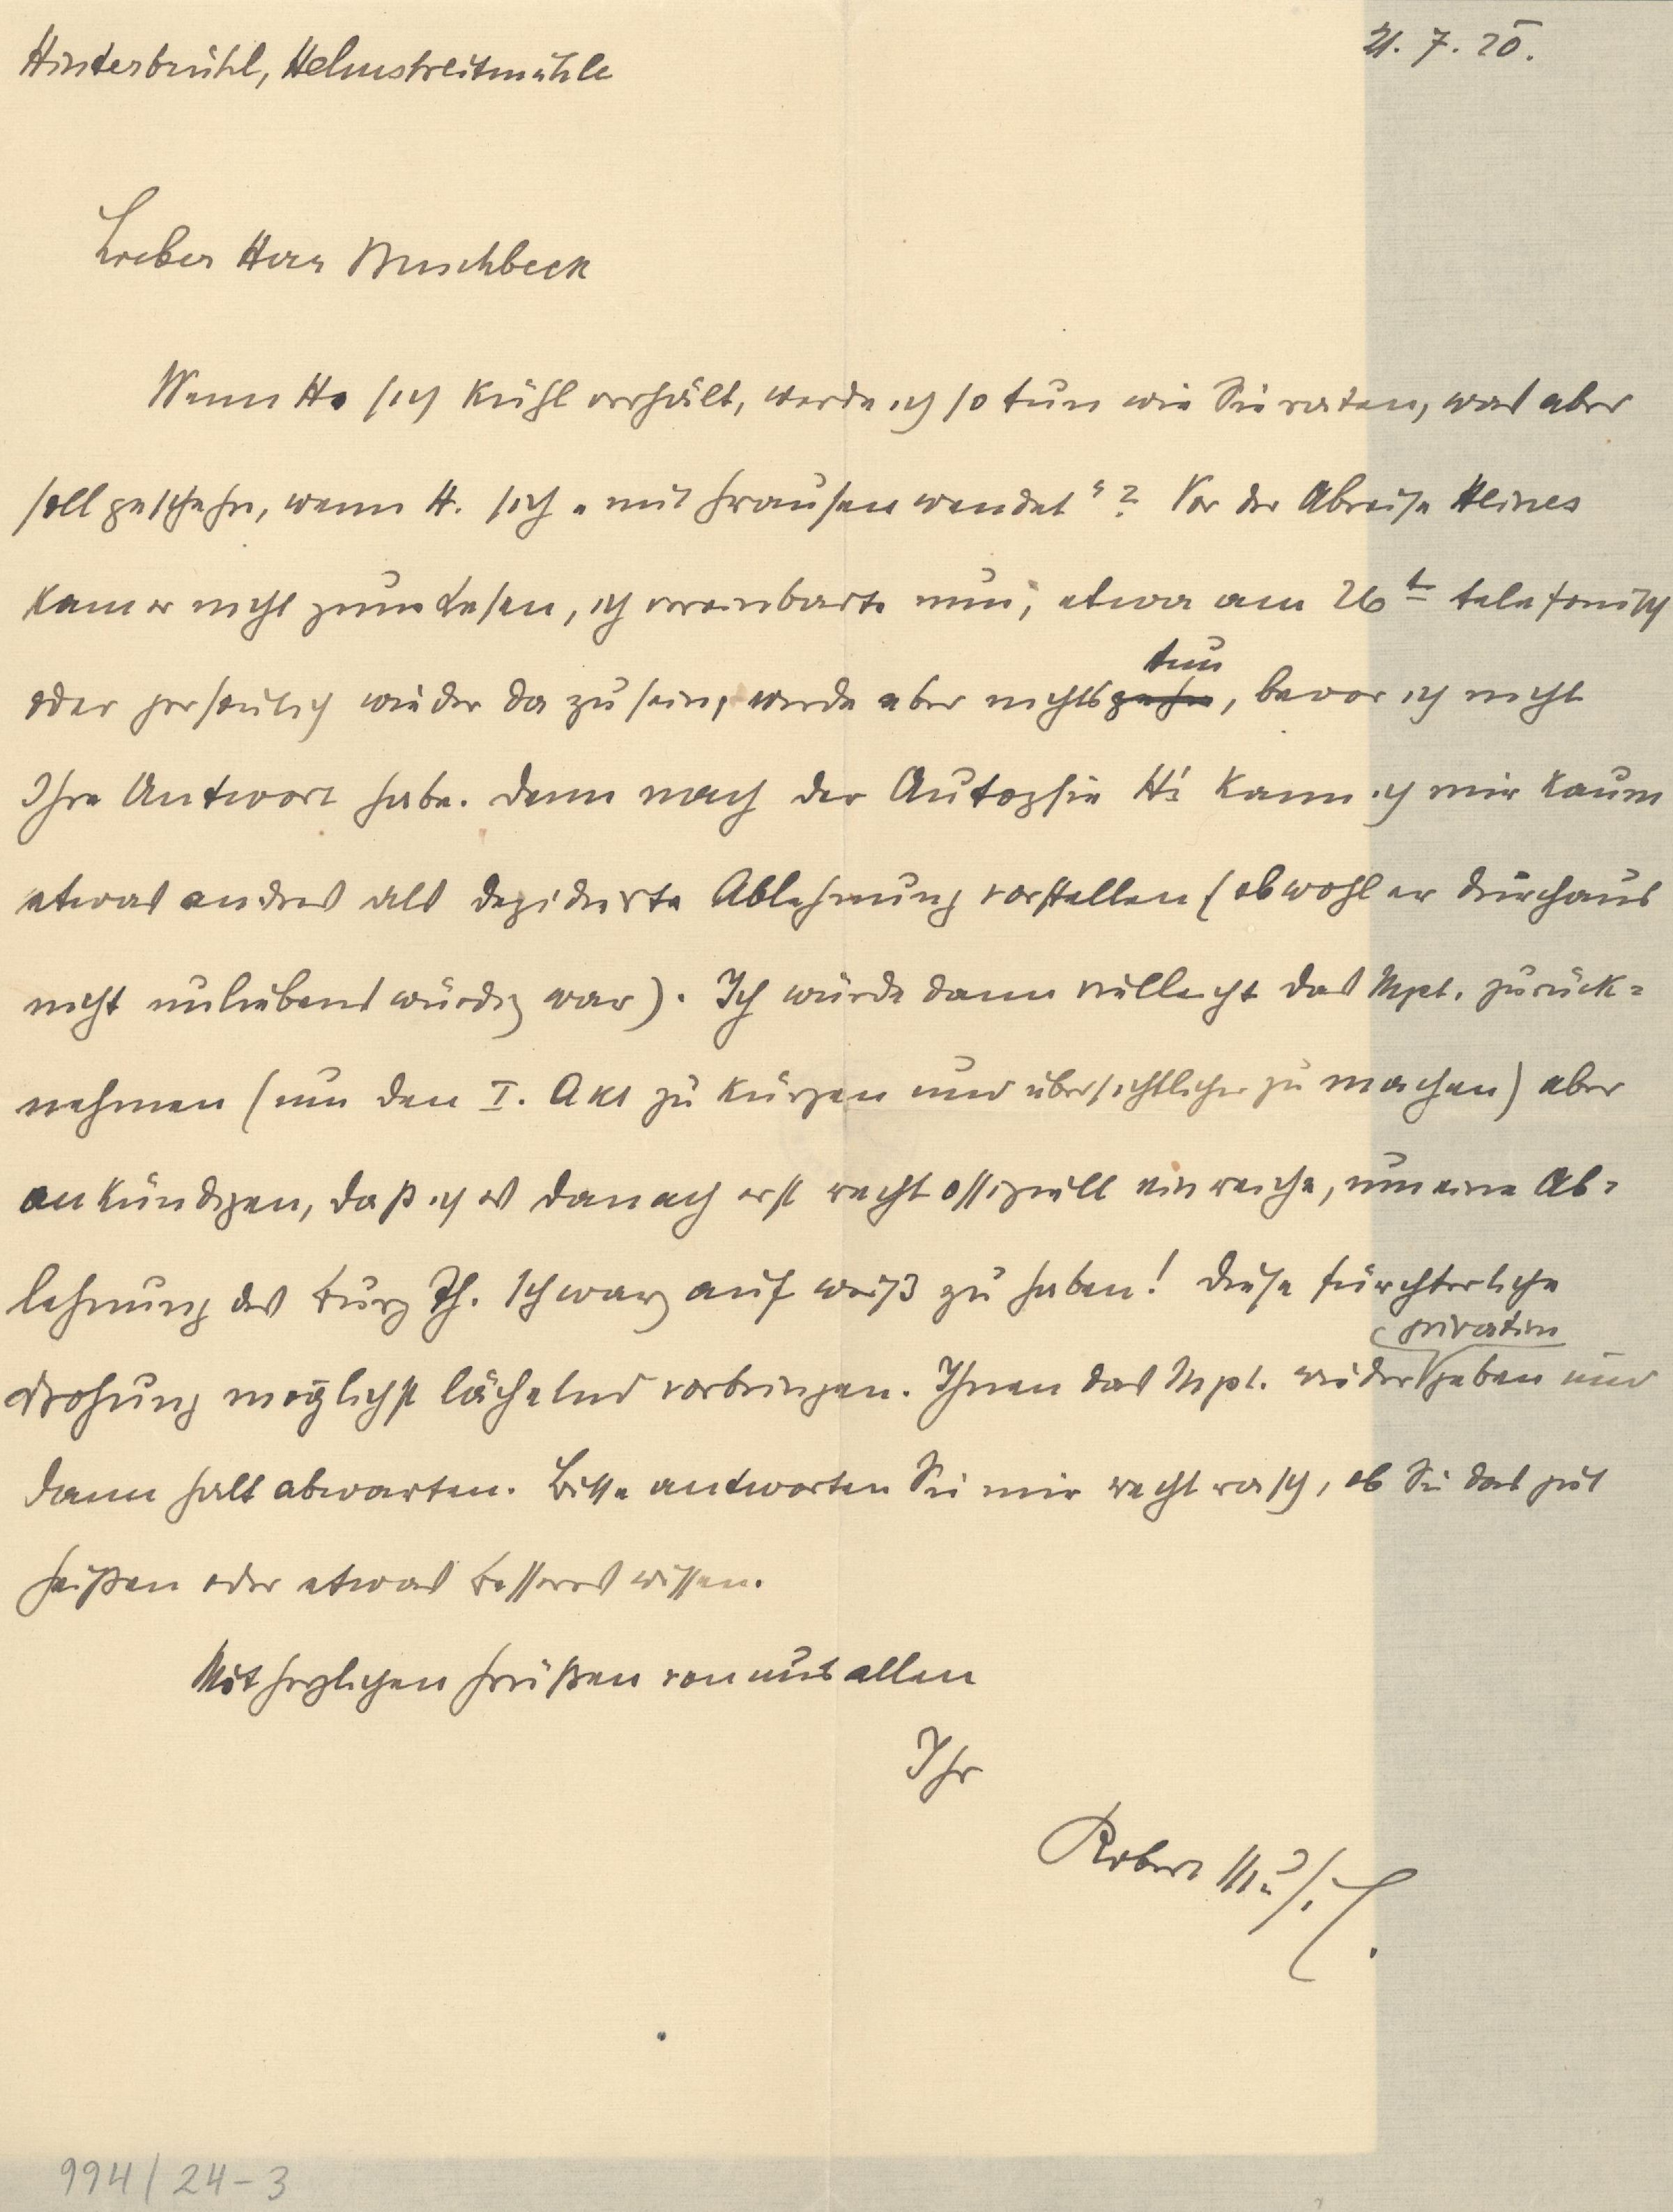 Hinterbrühl, Helmstreitmühle
21. 7. 20.
Lieber Herr Buschbeck
Wenn H. sich kühl verhält, werde ich so tun wie Sie raten, was aber
soll geschehn, wenn H. sich „mit Grausen wendet“? Vor der Abreise Heines
kam er nicht zum Lesen, ich vereinbarte nun, etwa am 26t telefonisch
oder persönlich wieder da zu sein, werde aber nichts gehn, bevor ich nicht
tun
Ihre Antwort habe. Denn nach der Autopsie H's kann ich mir kaum
etwas andres als dezidierte Ablehnung vorstellen (obwohl er durchaus
nicht unliebenswürdig war). Ich würde dann vielleicht das Mpt. zurück=
nehmen (um den I. Akt zu kürzen und übersichtlicher zu machen) aber
ankündigen, daß ich es danach erst recht offiziell einreiche, um eine Ab=
lehnung des Burg Th. schwarz auf weiß zu haben! Diese fürchterliche
privatim
Drohung möglichst lächelnd vorbringen. Ihnen das Mpt. wieder geben und
dann halt abwarten. Bitte antworten Sie mir recht rasch, ob Sie das gut
heißen oder etwas Besseres wissen.
Mit herzlichen Grüßen von uns allen
Ihr
Robert Musil.
994/24-3